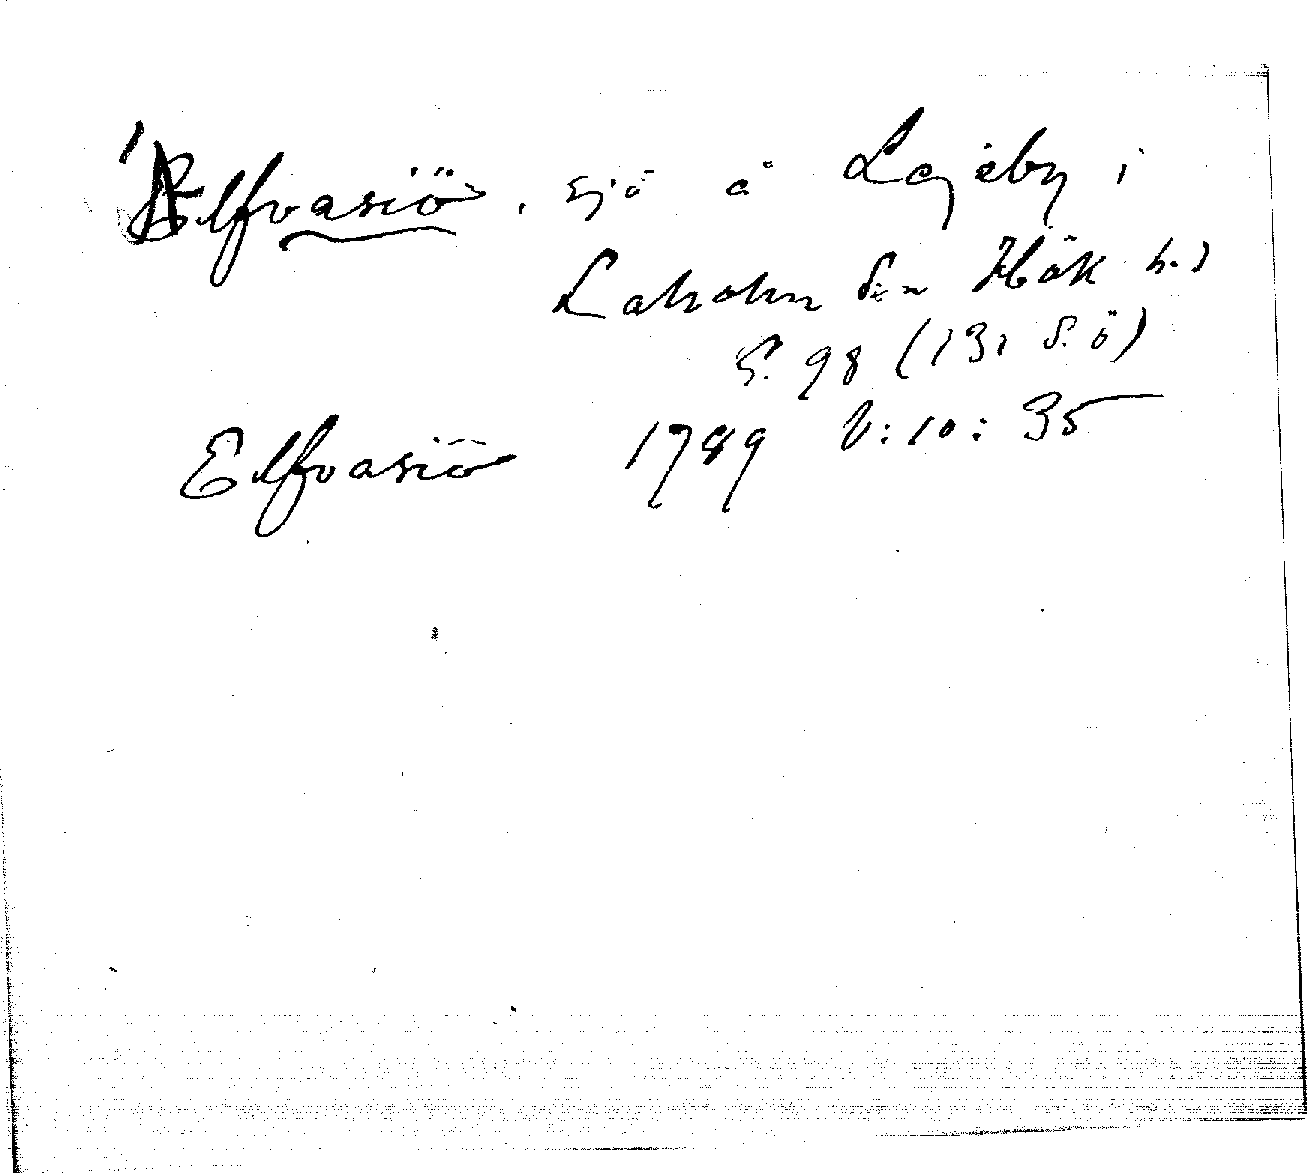 Elfvasiö, sjö å Lejeby i
Laholm sn Hök h.
S. 98 (131 S. ö)
Elfvasiö 1789 V:10:35